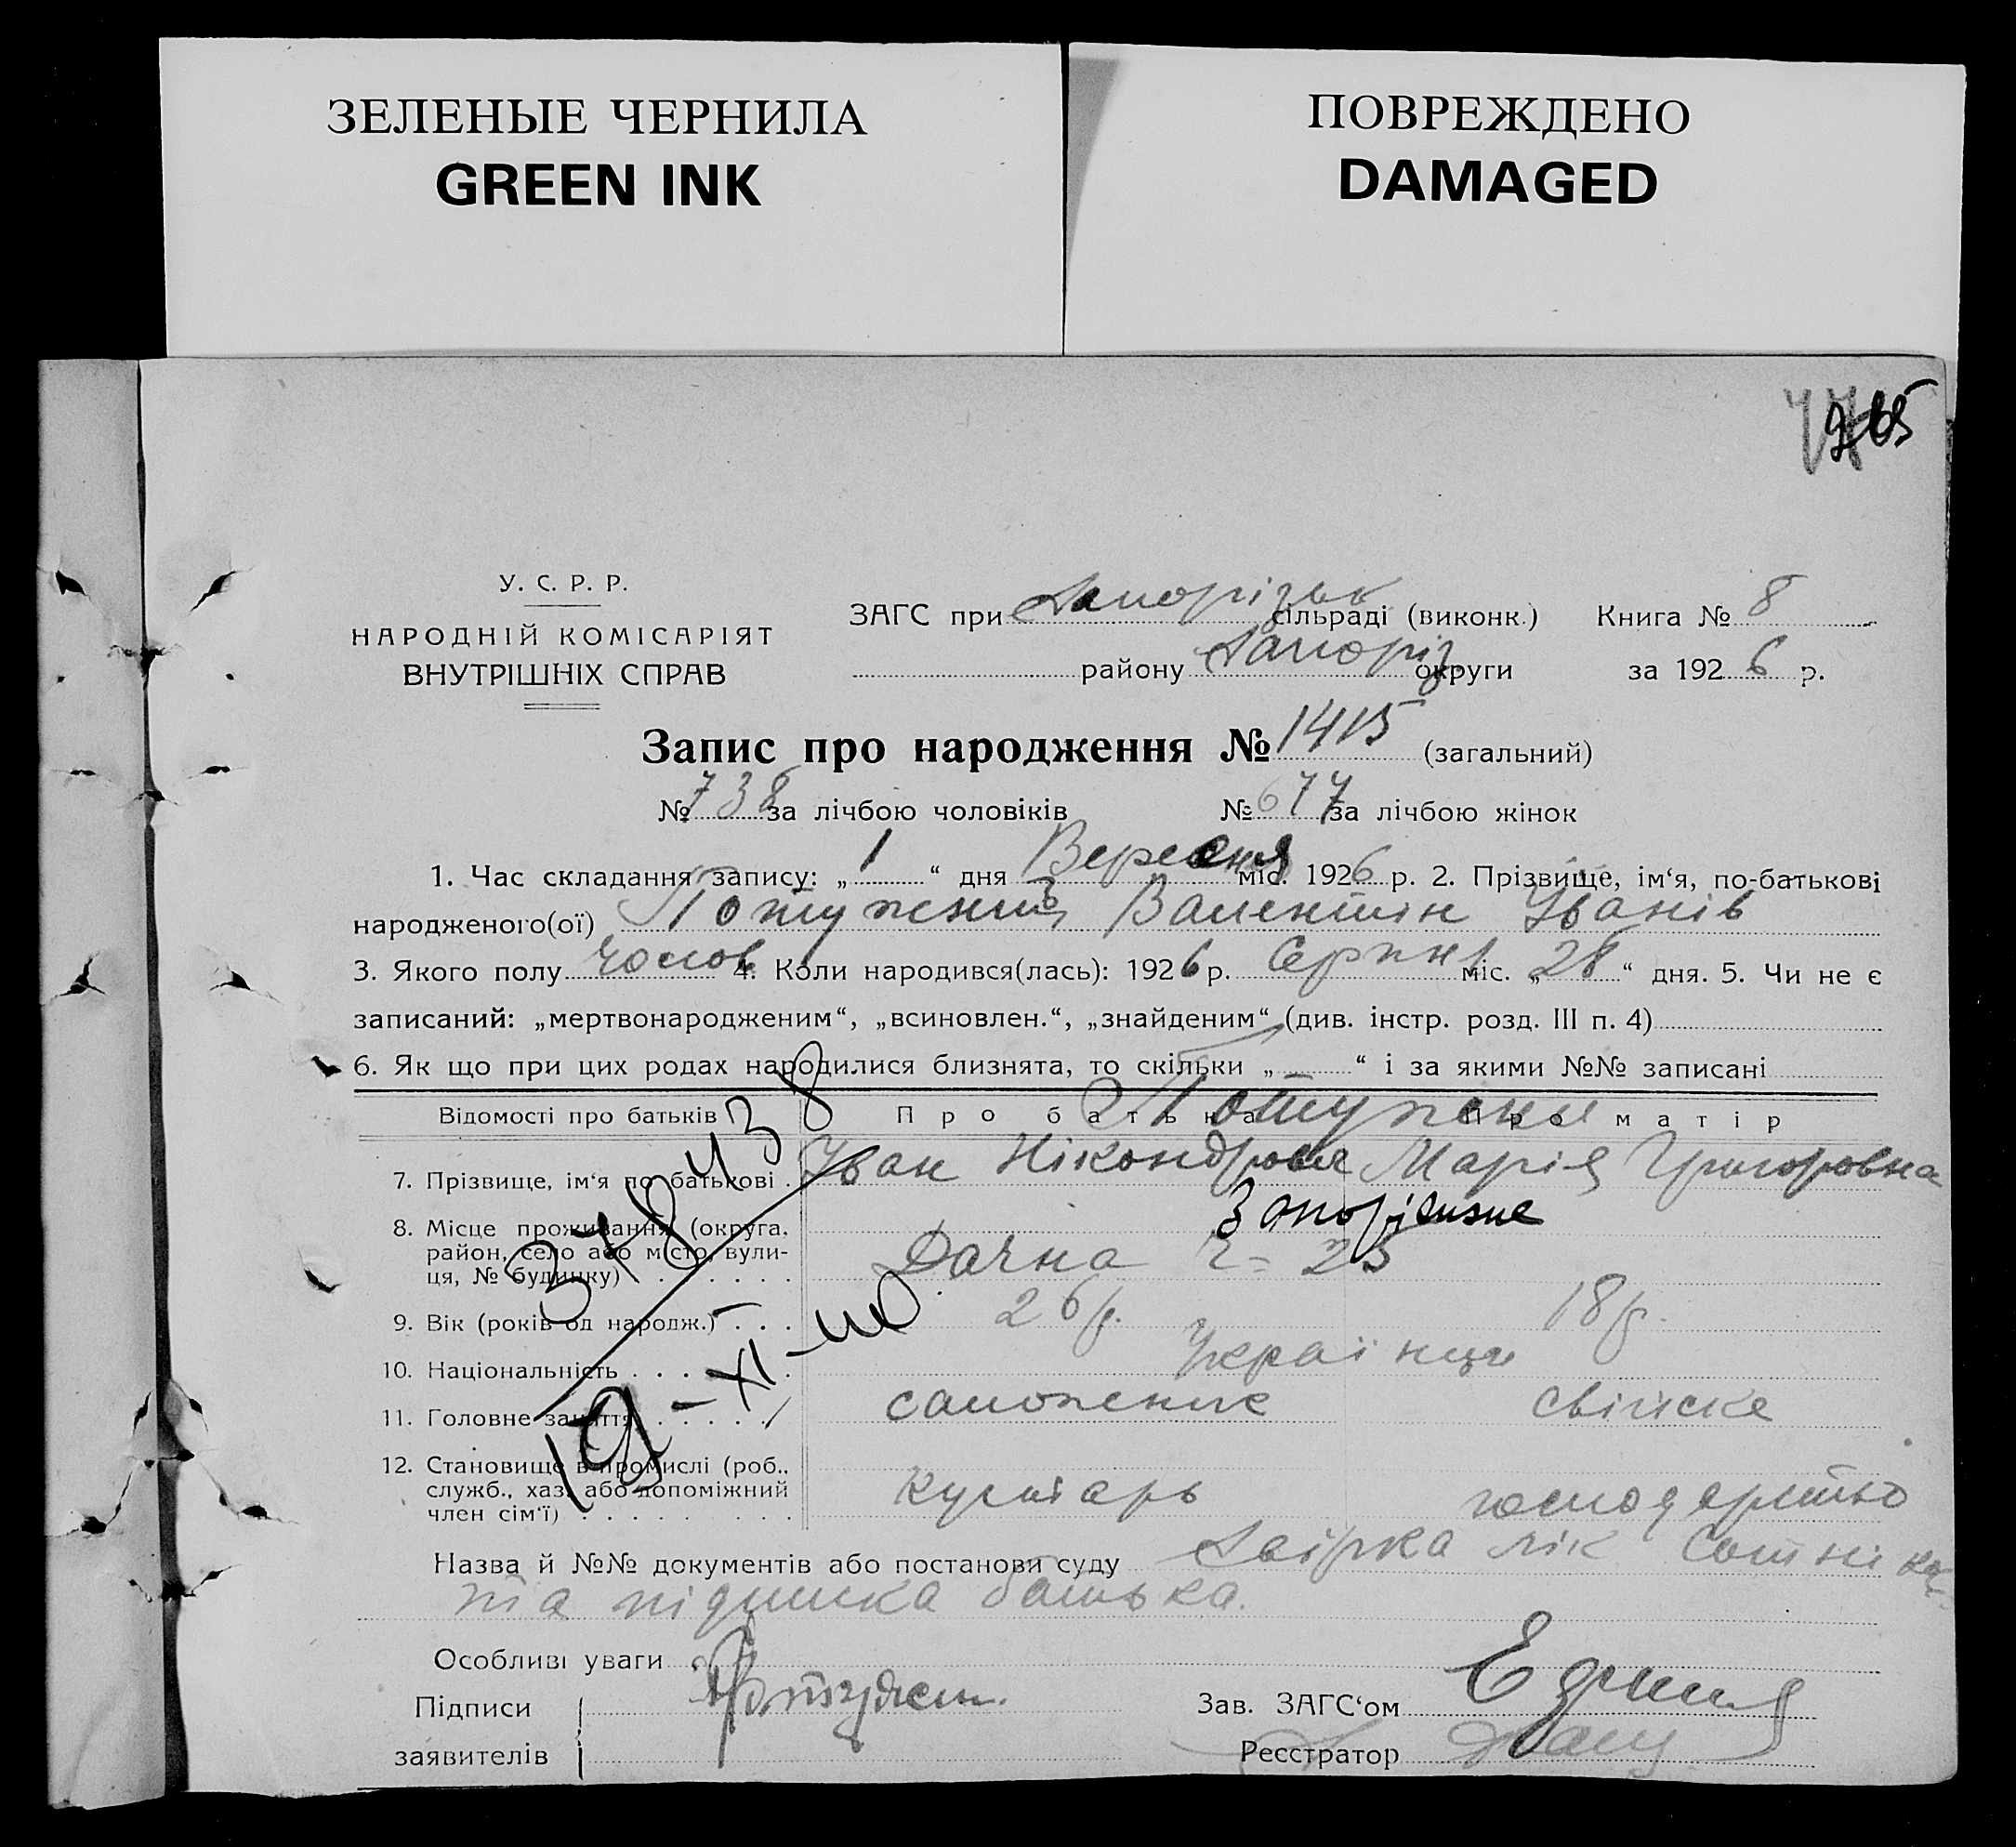 ЗЕЛЕНЫЕ ЧЕРНИЛА
GREEN INK
ПОВРЕЖДЕНО
DAMAGED
265
У. С. Р. Р.
НАРОДНІЙ КОМІСАРІЯТ
ВНУТРІШНІХ СПРАВ
ЗАГС при Запорізьк сільраді (виконк.) Книга № 8
району Запоріз округи за 1926 р.
Запис про народження № 1415 (загальний)
№ 738 за лічбою чоловіків № 677 за лічбою жінок
1. Час складання запису: „ 1 “ дня Вересня міс. 1926 р. 2. Прізвище, ім‘я, по-батькові
народженого(ої) Потужний Валентін Іванів
3. Якого полу чолов 4. Коли народився(лась): 1926 р. Серпня міс. „ 28 “ дня. 5. Чи не є
записаний: „мертвонародженим“, „всиновлен.“, „знайденим“ (див. інстр. розд. III п. 4)
6. Як що при цих родах народилися близнята, то скільки „ “ і за якими №№ записані
Відомості про батьків Про батька Про матір
Потужни
7. Прізвище, ім‘я по батькові . Іван Нікондрович Марія Григоровна
8. Місце проживання (округа, Запоріжжє
район, село або місто, вули- Дачна ч= 25
ця, № будинку) . . . . . .
9. Вік (років од народж.) . . . 26 р. 18 р.
10. Національність . . . . . Українці
11. Головне заняття . . . . . . свійске
12. Становище в промислі (роб.,
служб., хаз. або допоміжний кустарь господарство
член сім‘ї) . . . . . . . .
378438
19-XI-40
Назва й №№ документів або постанови суду Довірка лік Сотніка
та підписка батька.
Особливі уваги
Підписи Потужн.
заявителів
Зав. ЗАГС‘ом
Реєстратор